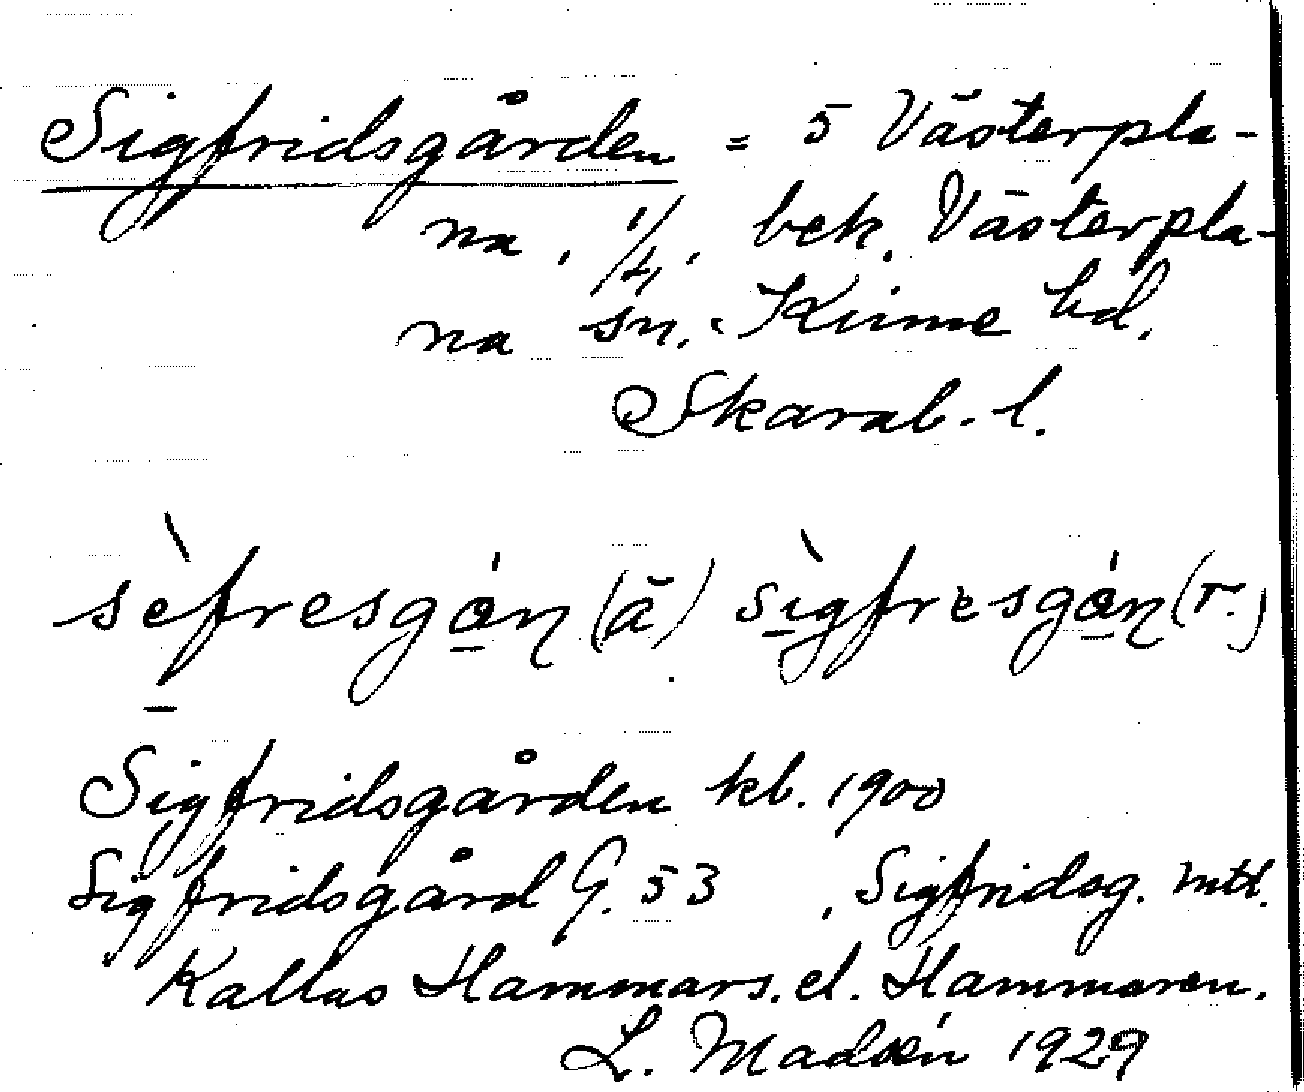 Sigfridsgården = 5 Västerpla-
na, 1/4, bek. Västerpla-
na sn. Kinne hd.
Skarab. l.
sè̱fresgǻ̱n (ä) sì̱gfresgǻ̱n (r.)
Sigfridsgården kb. 1900
Sigfridsgård G. 53, Sigfridsg. mtl.
Kallas Hammars. el. Hammaren.
L. Madsén 1929